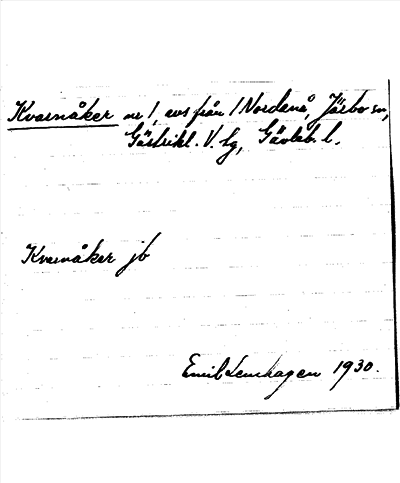 Kvarnåker nr 1, avs från 1 Nordanå, Järbo sn,
Gästrikl. V. tg, Gävleb. l.
Kvarnåker jb
Emil Lenhagen 1930.